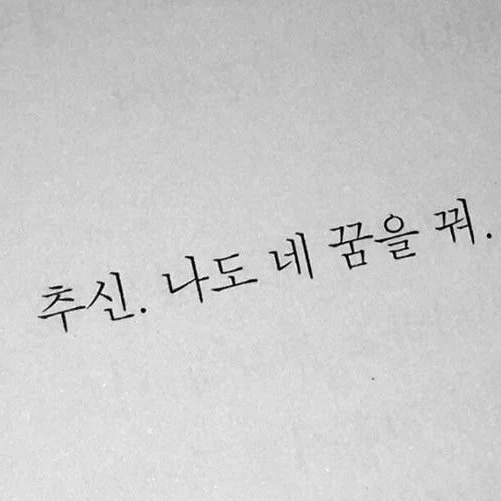 추신. 나도 네 꿈을 꿔.